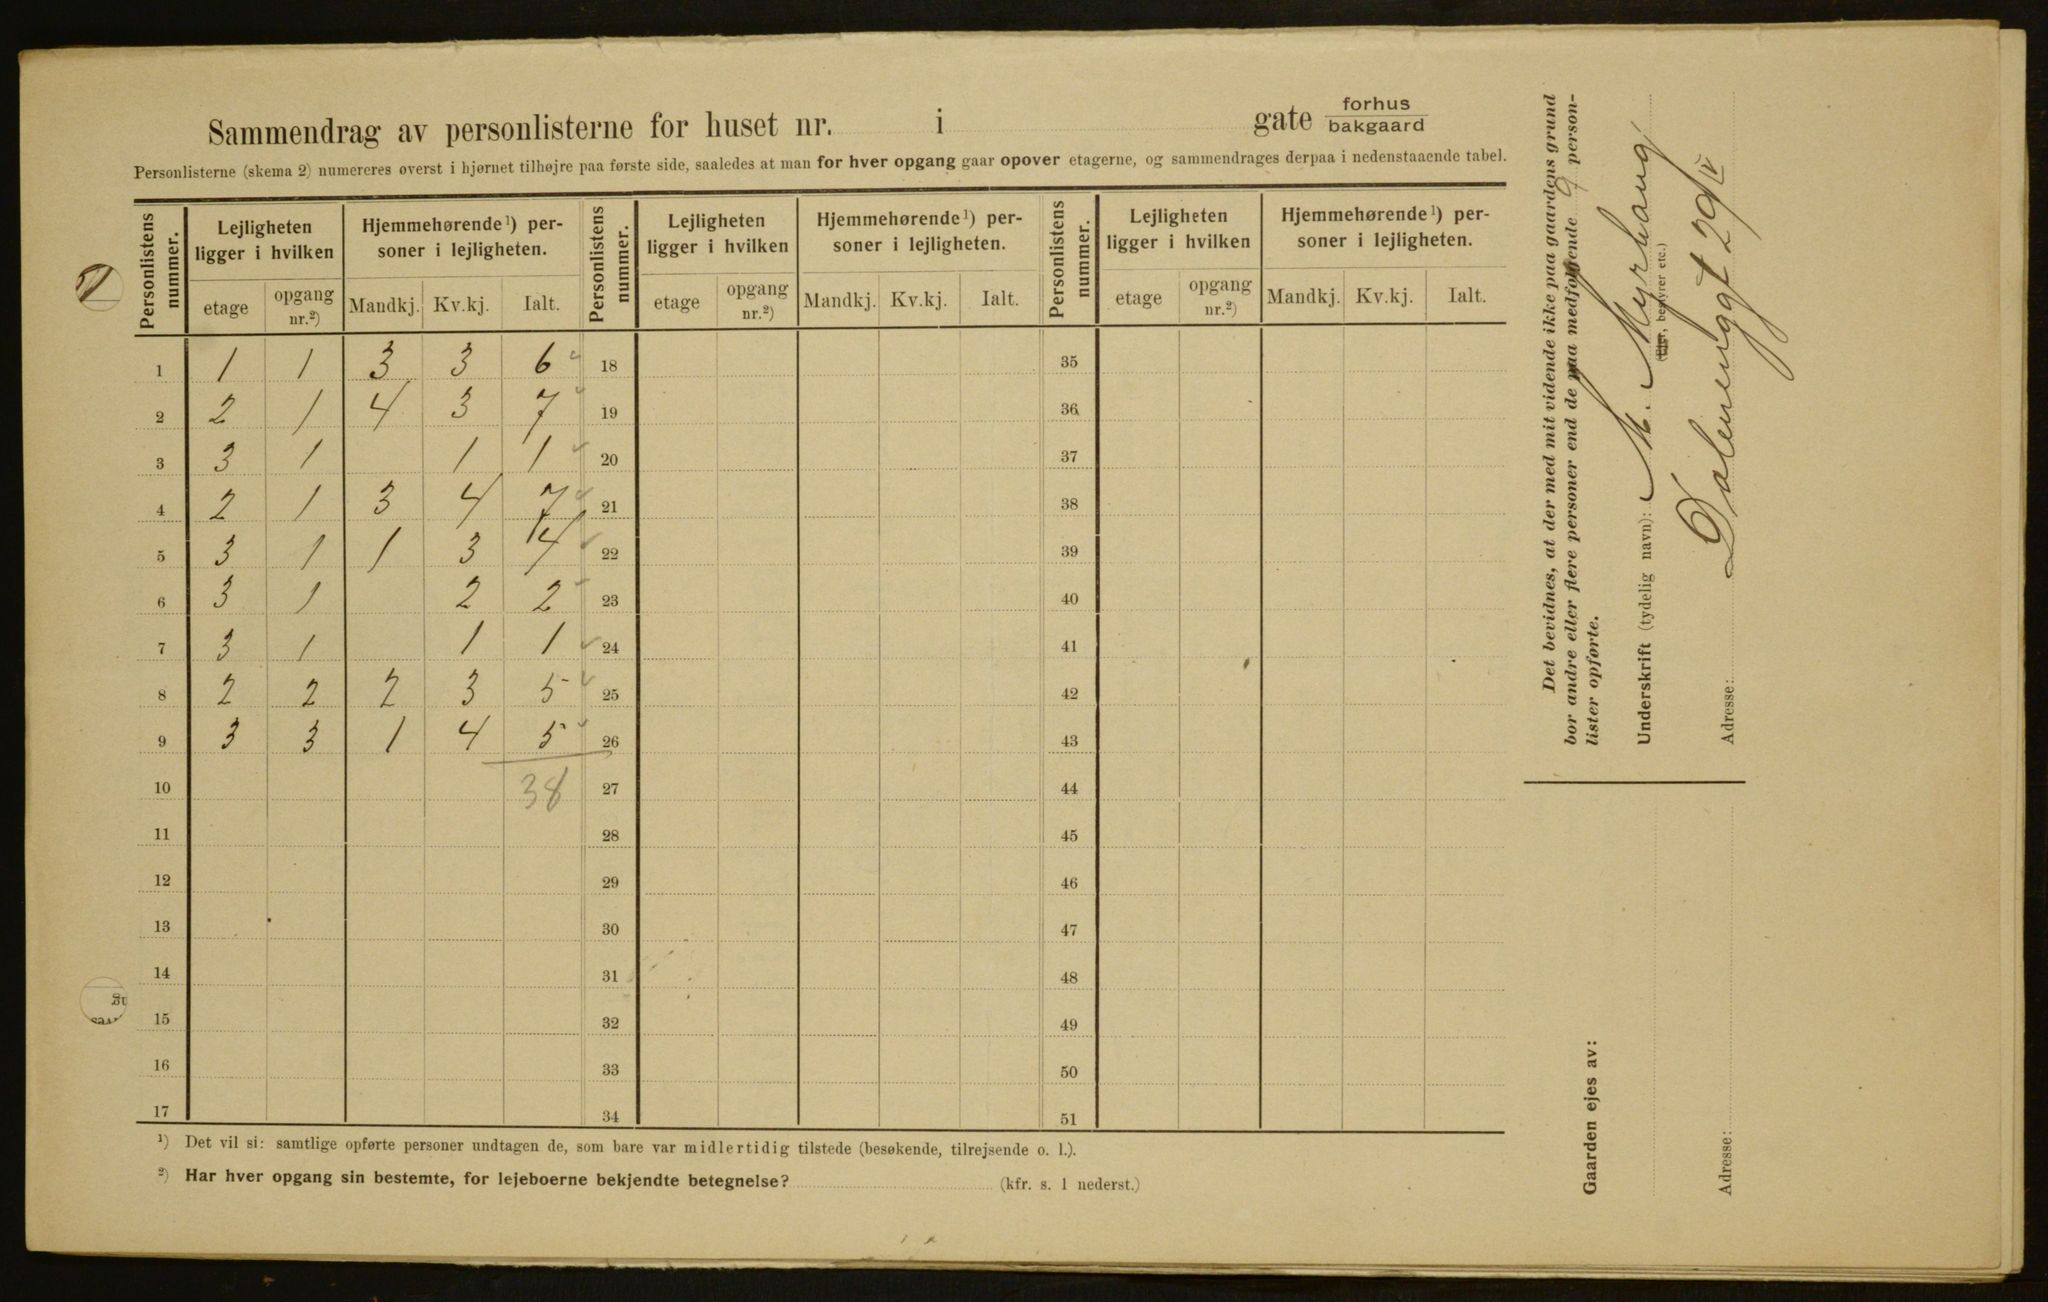 Sammendrag av personlisterne for huset nr. i gate forhus
bakgaard
Personlisterne (skema 2) numereres øverst i hjørnet tilhøjre paa første side, saaledes at man for hver opgang gaar opover etagerne, og sammendrages derpaa i nedenstaaende tabel.
Personlistens nummer. Lejligheten ligger i hvilken Hjemmehørende ¹) personer i lejligheten. Personlistens nummer. Lejligheten ligger i hvilken Hjemmehørende ¹) personer i lejligheten. Personlistens nummer. Lejligheten ligger i hvilken Hjemmehørende ¹) personer i lejligheten.
etage opgang nr.²) Mandkj. Kv.kj. Ialt. etage opgang nr.²) Mandkj. Kv.kj. Ialt. etage opgang nr.²) Mandkj. Kv.kj. Ialt.
1 1 1 3 3 6 18 35
2 2 1 4 3 7 19 36
3 3 1 1 1 20 37
4 2 1 3 4 7 21 38
5 3 1 1 3 4 22 39
6 3 1 2 2 23 40
7 3 1 1 1 24 41
8 2 2 2 3 5 25 42
9 3 3 1 4 5 26 43
10 38 27 44
11 28 45
12 29 46
13 30 47
14 31 48
15 32 49
16 33 50
17 34 51
¹) Det vil si: samtlige opførte personer undtagen de, som bare var midlertidig tilstede (besøkende, tilrejsende o. l.).
²) Har hver opgang sin bestemte, for lejeboerne bekjendte betegnelse? (kfr. s. 1 nederst.)
Det bevidnes, at der med mit vidende ikke paa gaardens grund
bor andre eller flere personer end de paa medfølgende 9 person-
lister opførte.
Underskrift (tydelig navn): M. Myrhaug
(Ejer, bestyrer etc.)
Adresse: Dalenenggt 29 IV
Gaarden ejes av:
Adresse: